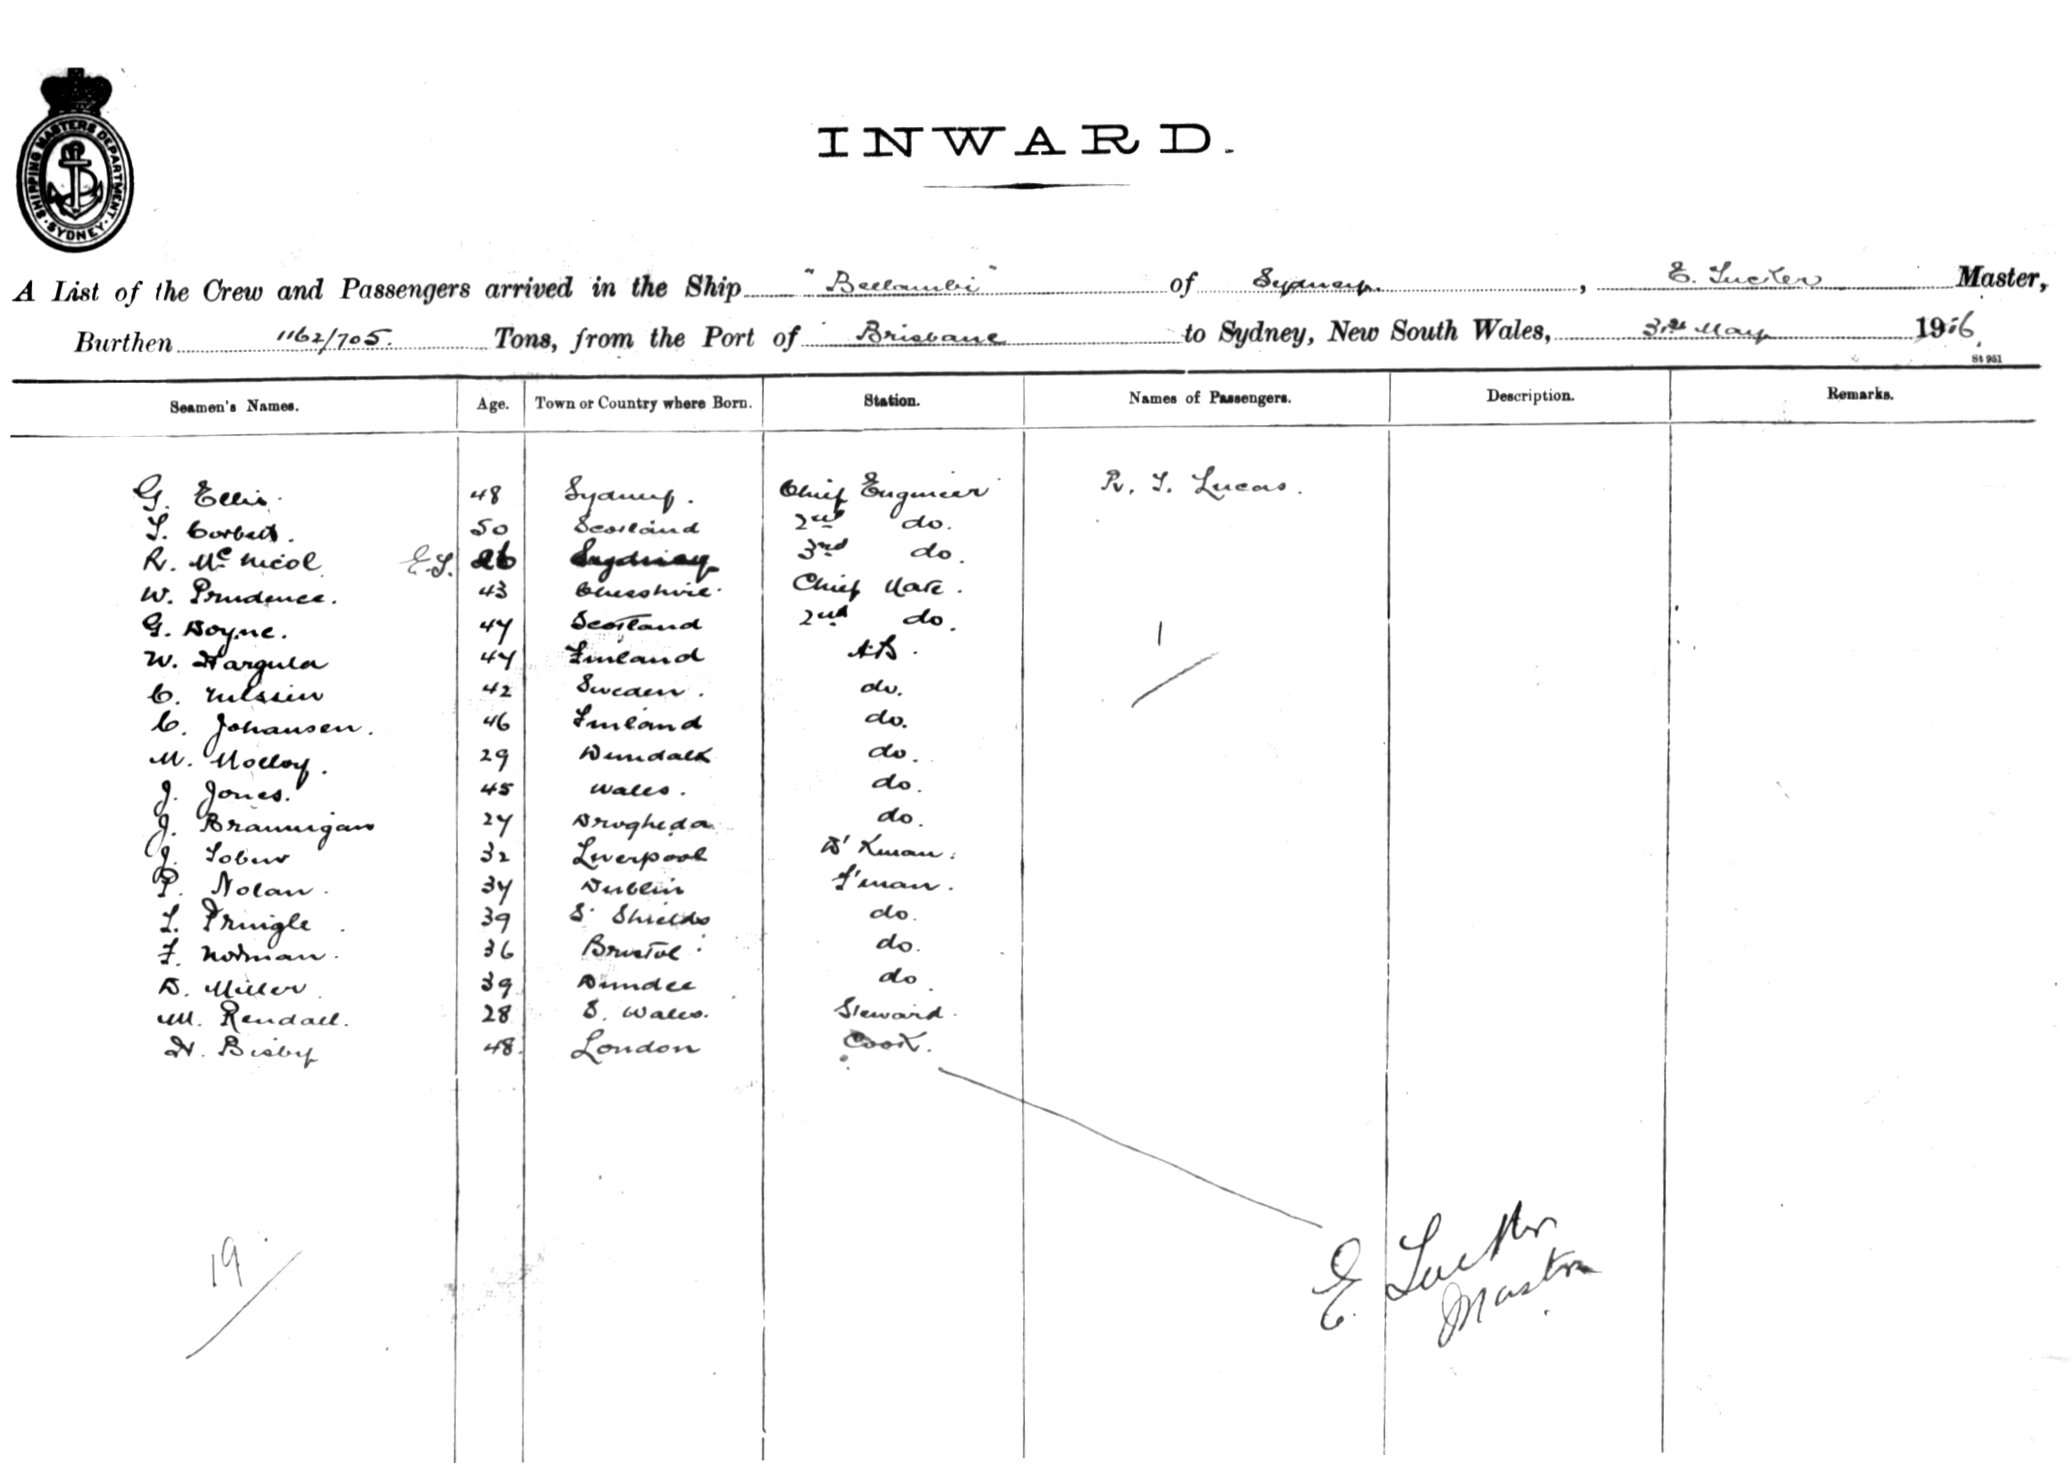 SHIPPING MASTERS DEPARTMENT · SYDNEY ·
INWARD.
A List of the Crew and Passengers arrived in the Ship "Bellambi" of Sydney. , E. Tucker Master,
Burthen 1162/705. Tons, from the Port of Brisbane to Sydney, New South Wales, 3rd May 1916
St 951
Seamen's Names. Age. Town or Country where Born. Station. Names of Passengers. Description. Remarks.
G. Ellis. 48 Sydney. Chief Engineer P. T. Lucas.
T. Corbett. 50 Scotland 2nd do.
R. McNicol E.T. 26 Sydney 3rd do.
W. Prudence. 43 Chesshire. Chief Mate.
G. Doyne. 47 Scotland 2nd do.
W. Hargula 47 Finland AB.
C. Nilssen 42 Sweden. do.
C. Johansen. 46 Finland do.
M. Molloy. 29 Dundalk do.
J. Jones. 45 Wales. do.
J. Brannigan 27 Drogheda do.
J. Tobin 32 Liverpool D'Kman.
P. Nolan. 37 Dublin F'man.
T. Pringle. 39 S. Shields do.
F. Norman. 36 Bristol do.
D. Miller 39 Dundee do.
M. Rendall. 28 S. Wales. Steward.
H. Bisby 48. London Cook.
1
19
E. Tucker
Master